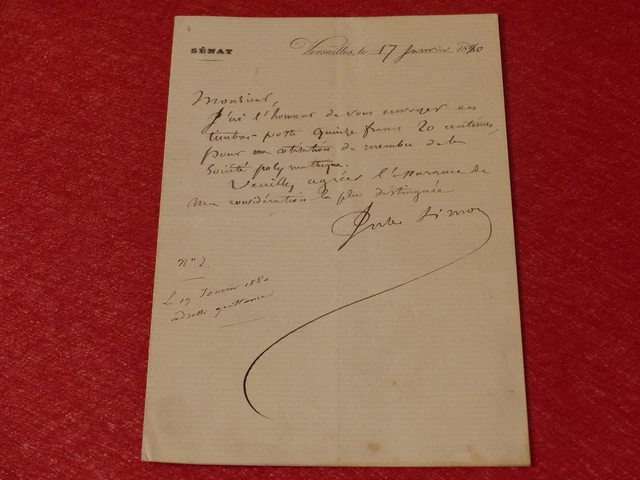 SÉNAT
Versailles, le 17 Janvier 1880
Monsieur,
J'ai l'honneur de vous envoyer en
timbres-poste quinze francs 20 centimes,
pour ma cotisation de membre de la
Société polymathique.
Veuillez agréer l'assurance de
ma considération la plus distinguée
Jules Simon
N° 2.
Le 19 Janvier 1880
adressé quittance